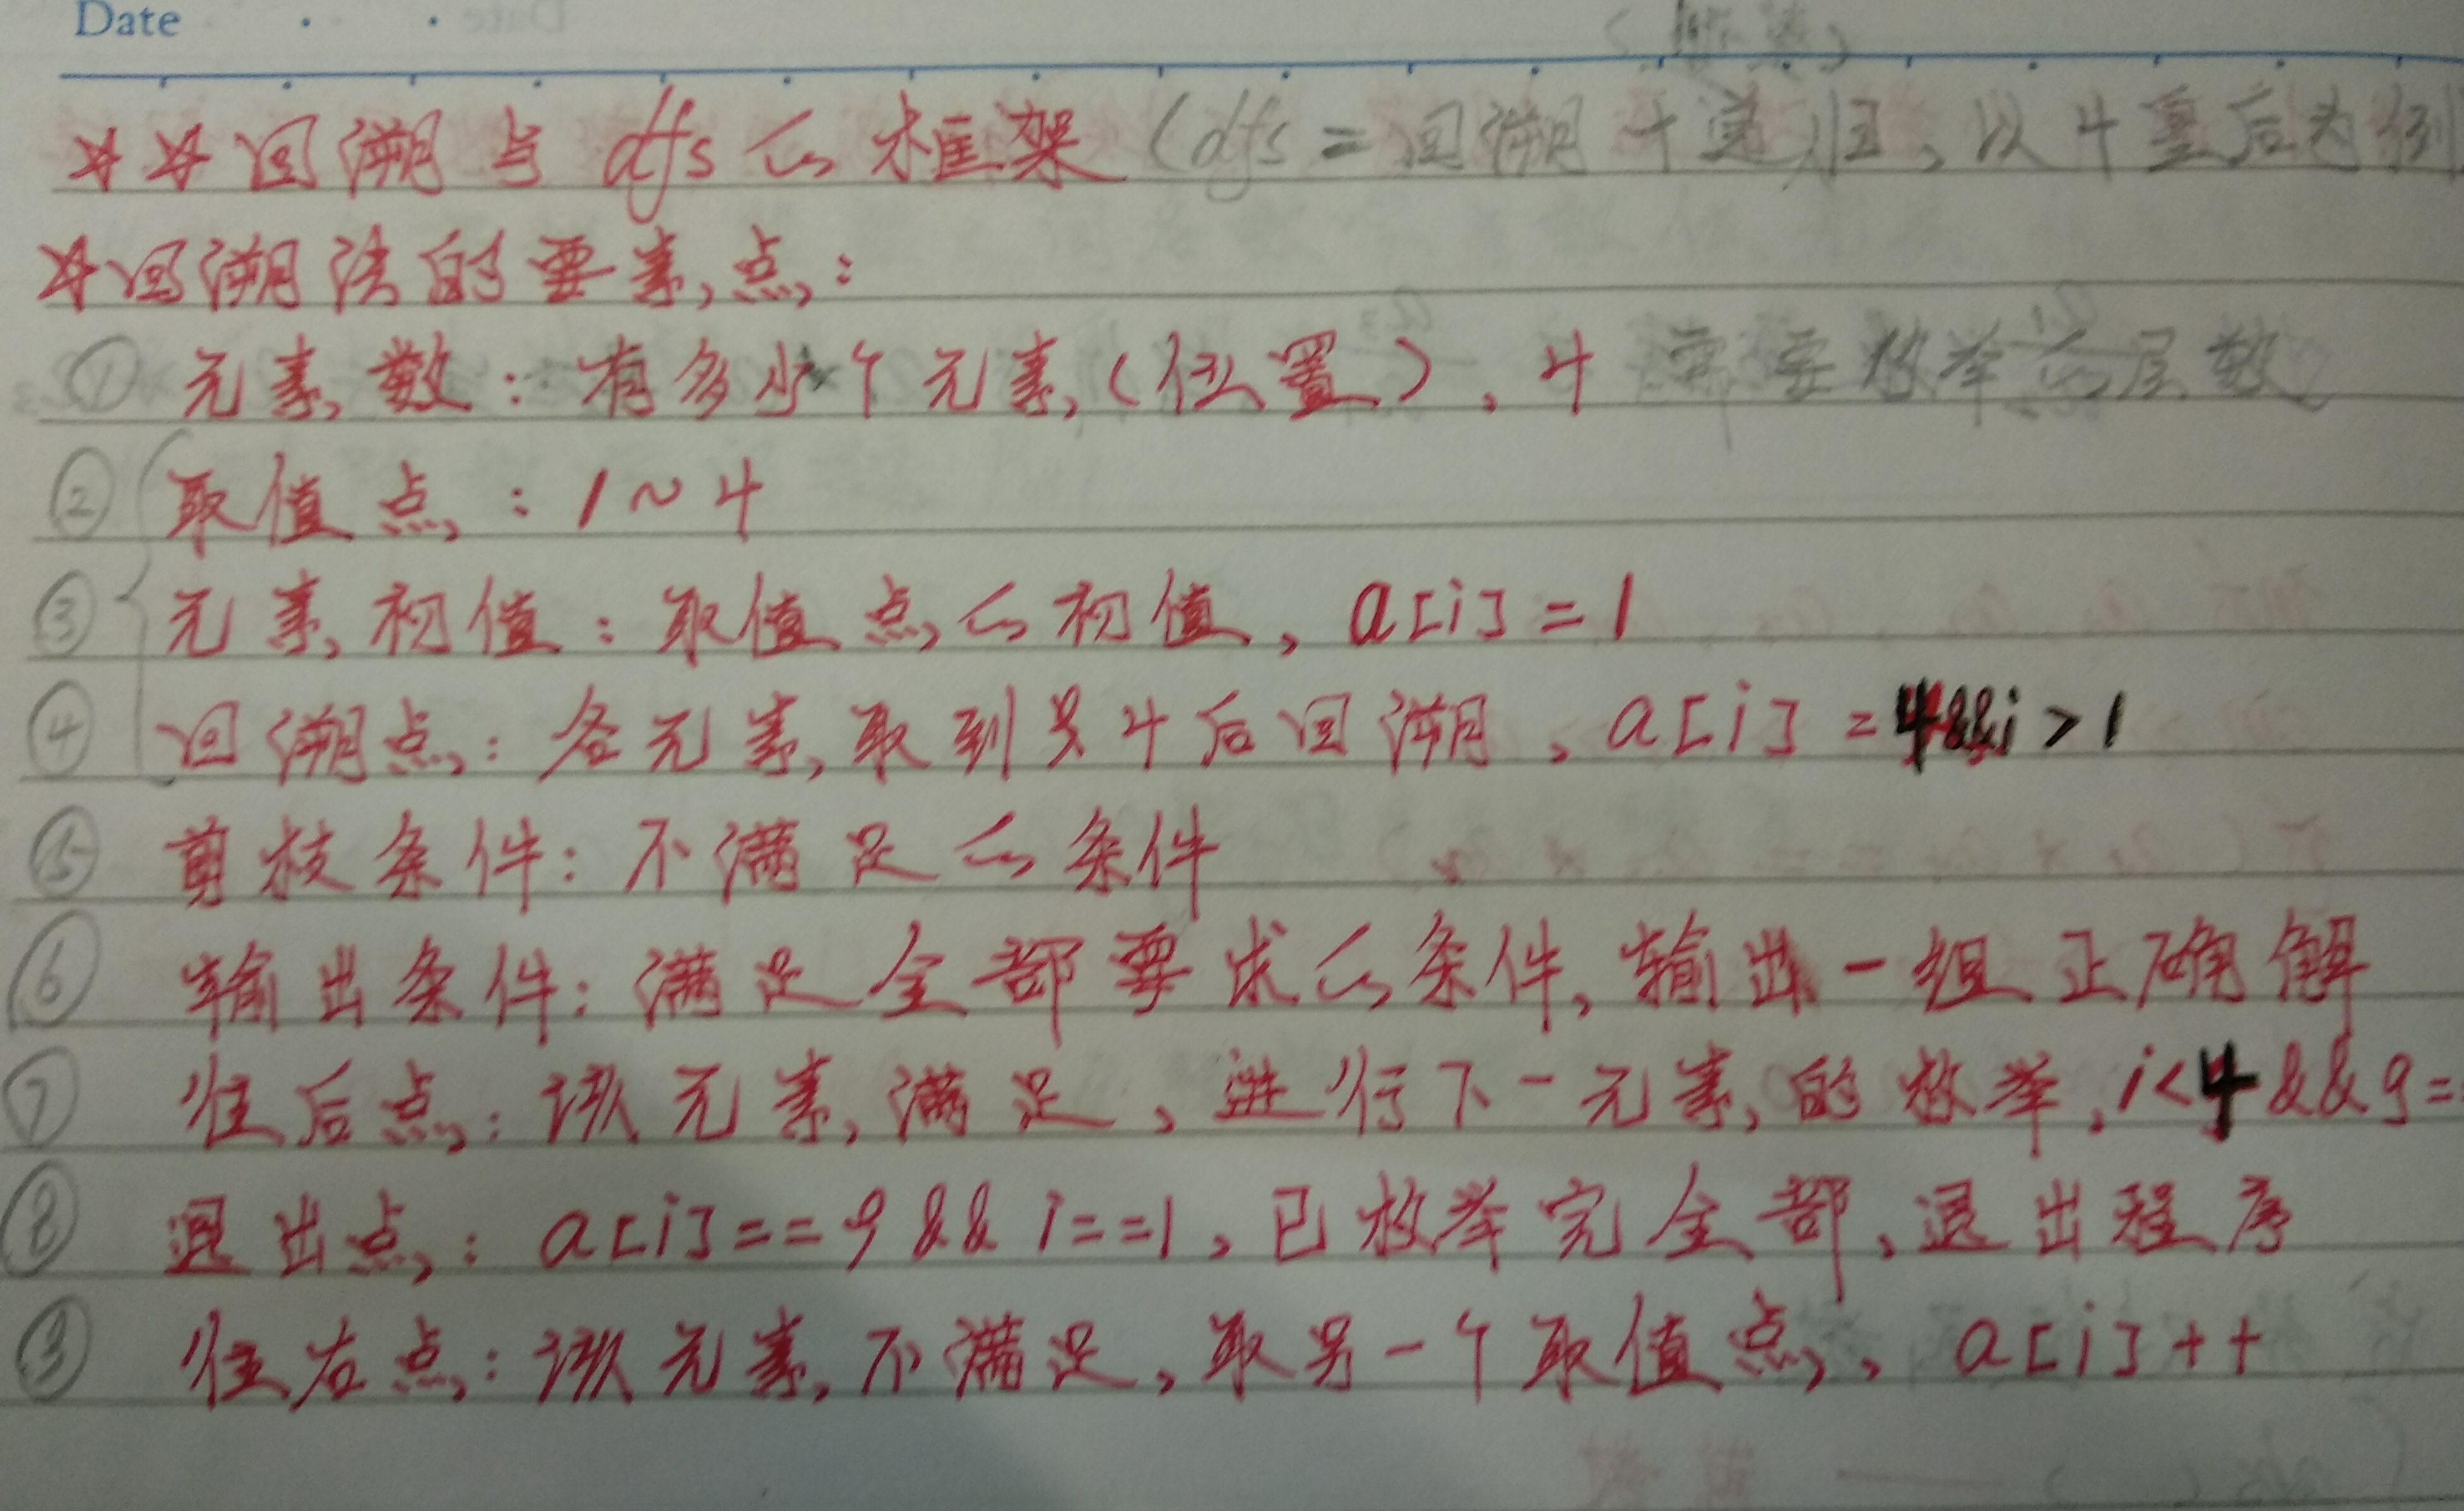 Date
☆☆回溯与dfs的框架(dfs=回溯+递归、以4皇后为例
☆回溯法的要素点:
① 元素数:有多少个元素(位置)、4 需要枚举的层数
② 取值点:1~4
③ 元素初值:取值点的初值,a[i]=1
④ 回溯点:各元素取到 4后回溯、a[i]=4&&i>1
⑤ 剪枝条件:不满足的条件
⑥ 输出条件:满足全部要求的条件,输出一组正确解
⑦ 往后点:该元素满足、进行下一元素的枚举,i<4&&g=
⑧ 退出点:a[i]==9&&i==1,已枚举完全部、退出程序
⑨ 往右点:该元素不满足,取另一个取值点、a[i]++